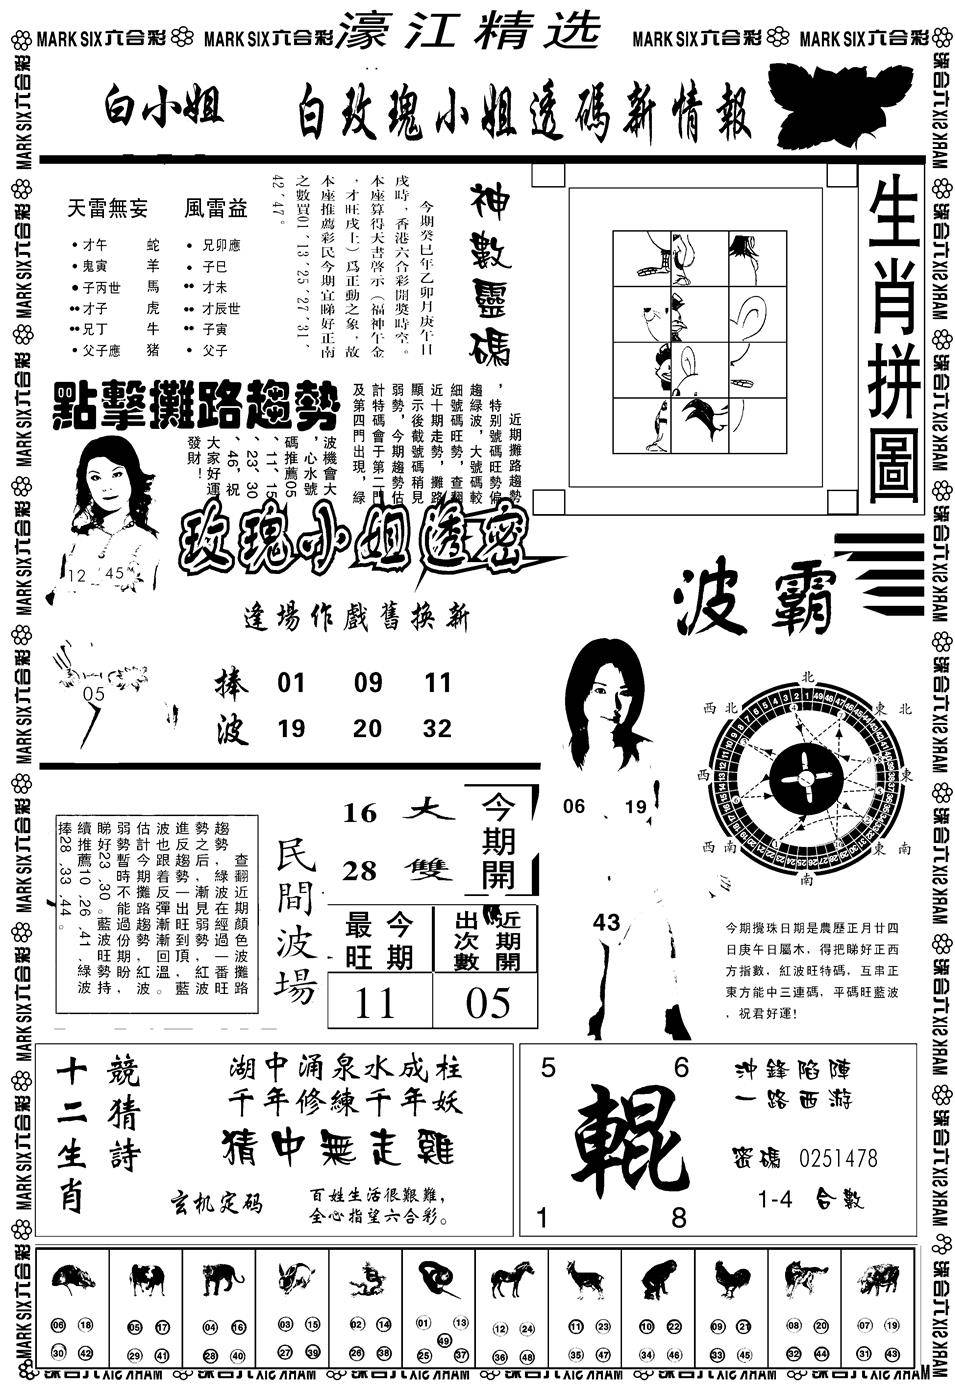 MARK SIX 六合彩
MARK SIX 六合彩
濠江精选
MARK SIX 六合彩
MARK SIX 六合彩
白小姐
白玫瑰小姐透碼新情報
天雷無妄
風雷益
才午 蛇
鬼寅 羊
子丙世 馬
才子 虎
兄丁 牛
父子應 猪
兄卯應
子巳
才未
才辰世
子寅
父子
神數靈碼
今期癸巳年乙卯月庚午日
戌時，香港六合彩開獎時空。
本座算得天書啓示（福神午金
，才旺戌土）爲正動之象，故
本座推薦彩民今期宜睇好正南
之數買01，13，25，27，31，
42，47。
生肖拼圖
點擊攤路趨勢
近期攤路趨勢
，特別號碼旺勢偏
趨綠波，大號碼較
細號碼旺勢，查翻
近十期走勢，攤路
顯示後截號碼稍見
弱勢，今期趨勢估
計特碼會于第二門
及第四門出現，綠
波機會大
，心水號
碼推薦05
、11、15
、23、30
、46，祝
大家好運
發財！
12 45
05
玫瑰小姐透密
逢場作戲舊換新
捧 01 09 11
波 19 20 32
波霸
06 19
43
北
東北
東
東南
南
西南
西
西北
今期攪珠日期是農歷正月廿四
日庚午日屬木，得把睇好正西
方指數，紅波旺特碼，互串正
東方能中三連碼，平碼旺藍波
，祝君好運！
查翻近期顔色波攤路
趨勢，綠波在經過一番旺
勢之后，漸見弱勢，紅波
進反趨勢一出旺到頂，藍
波也跟着反彈漸漸回溫。
估計今期攤路趨勢，紅波
弱勢暫時不能過份期盼，
睇好23，30。藍波旺勢持
續推薦10，26，41，綠波
捧28，33，44。
民間波場
16 大
28 雙
今期開
今期最旺
近期開出次數
11
05
十二生肖
競猜詩
湖中涌泉水成柱
千年修練千年妖
猜中無走雞
玄机定码
百姓生活很艱難，
全心指望六合彩。
5 6
輥
1 8
沖鋒陷陣
一路西游
密碼 0251478
1-4 合數
06 18
30 42
05 17
29 41
04 16
28 40
03 15
27 39
02 14
26 38
01 13
49
25 37
12 24
36 48
11 23
35 47
10 22
34 46
09 21
33 45
08 20
32 44
07 19
31 43